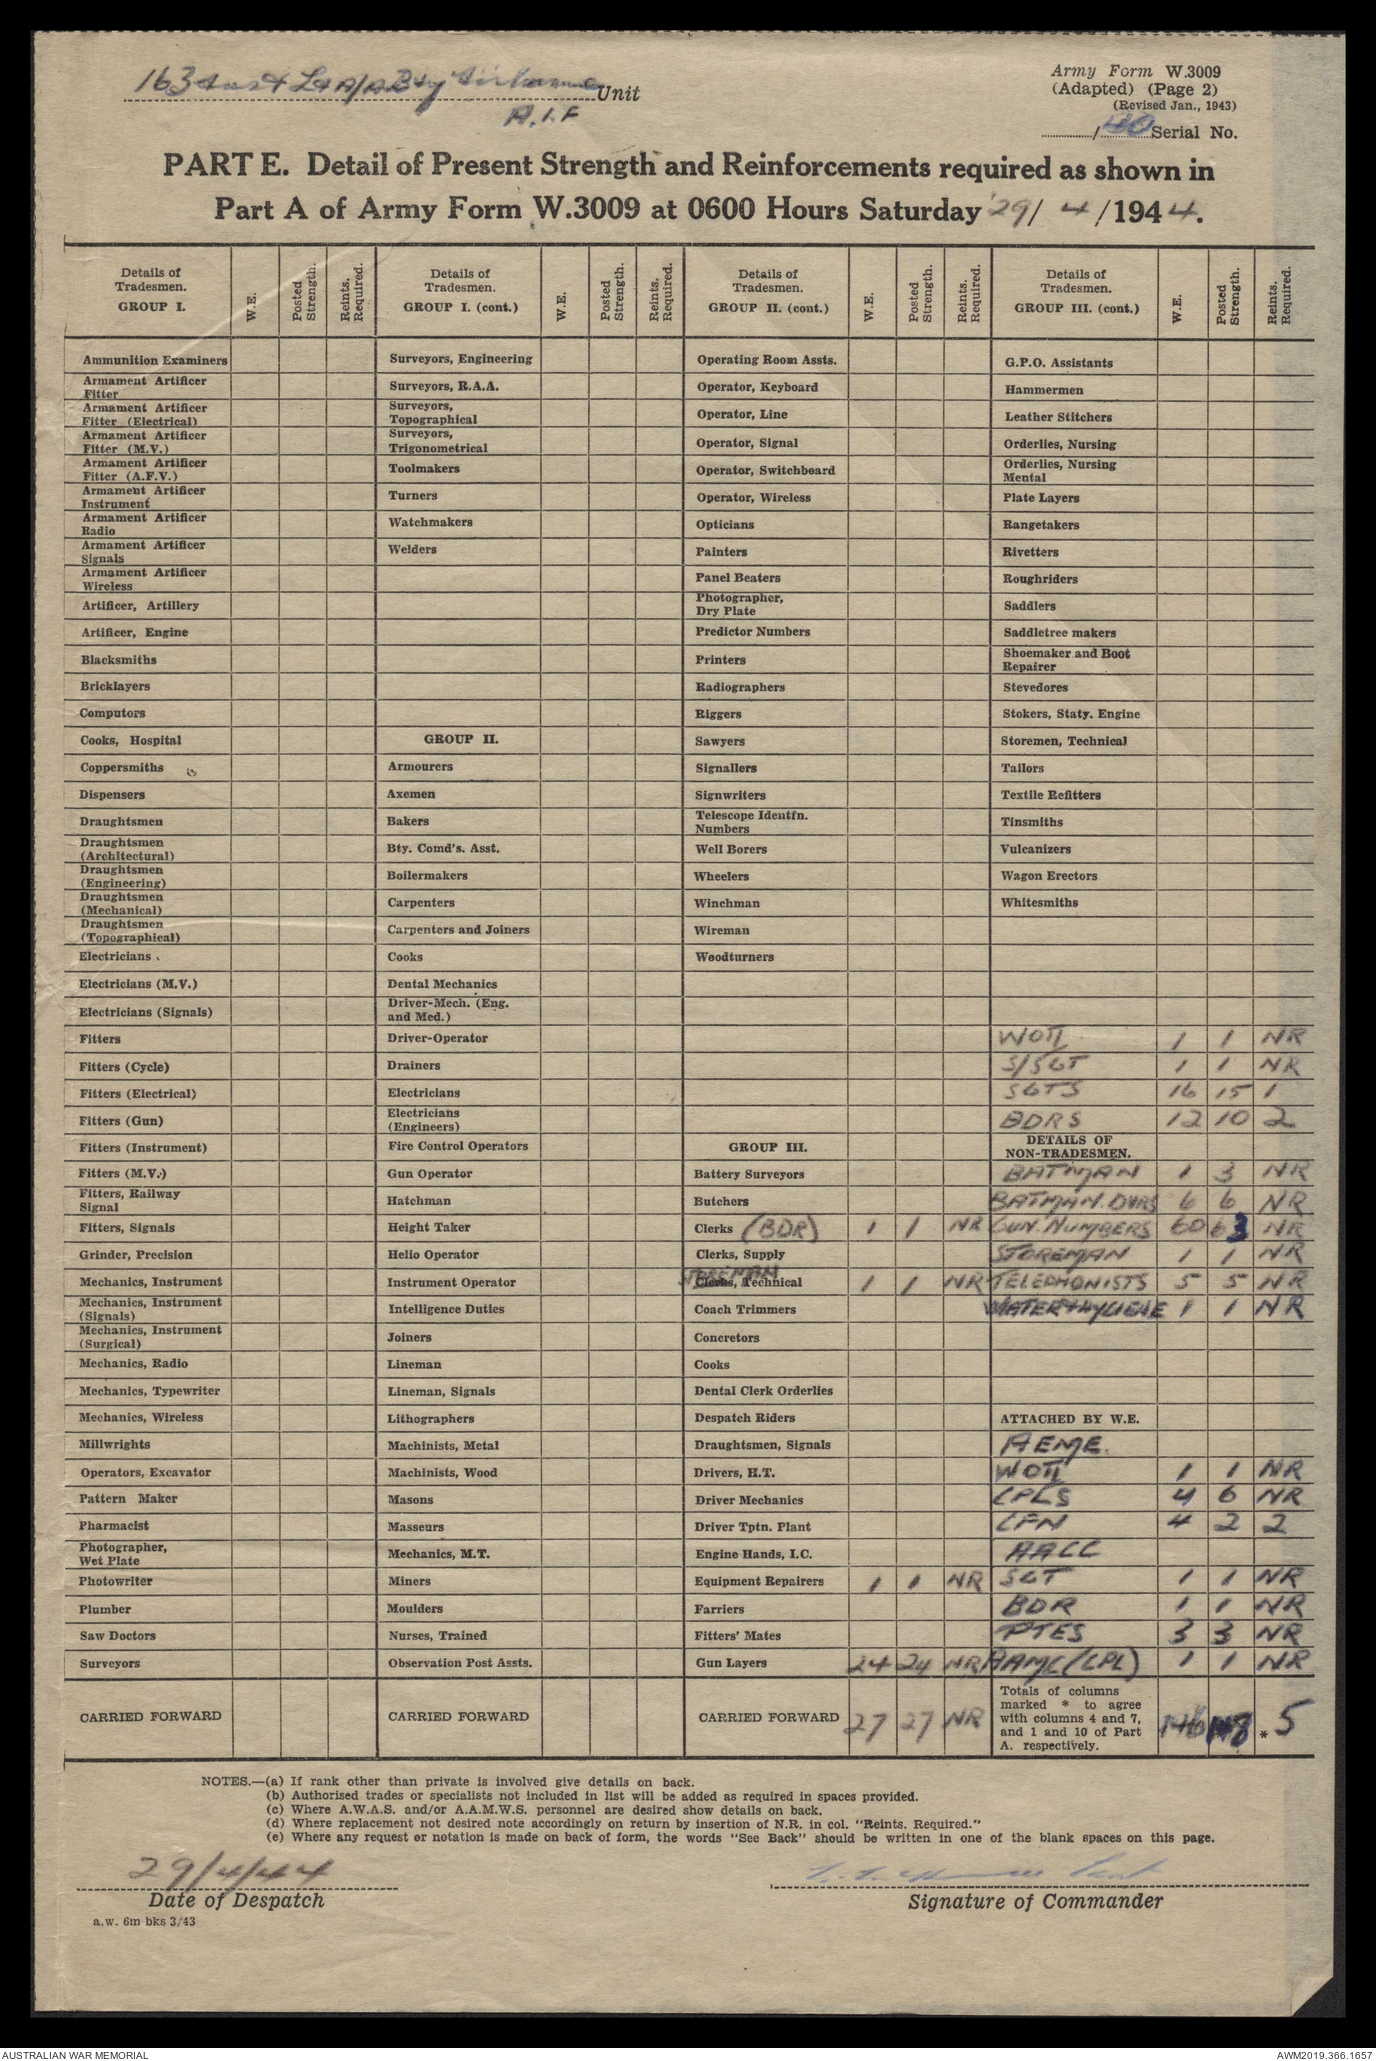 163 Aust Lt A/A Bty Airborne Unit
A.I.F
Army Form W.3009
(Adapted) (Page 2)
(Revised Jan., 1943)
/ Serial No.
PART E. Detail of Present Strength and Reinforcements required as shown in
Part A of Army Form W.3009 at 0600 Hours Saturday 29/ 4 /1944.
Details of Tradesmen. GROUP I. W.E. Posted Strength. Reints. Required.
Ammunition Examiners
Armament Artificer
Fitter
Armament Artificer
Fitter (Electrical)
Armament Artificer
Fitter (M.V.)
Armament Artificer
Fitter (A.F.V.)
Armament Artificer
Instrument
Armament Artificer
Radio
Armament Artificer
Signals
Armament Artificer
Wireless
Artificer, Artillery
Artificer, Engine
Blacksmiths
Bricklayers
Computors
Cooks, Hospital
Coppersmiths
Dispensers
Draughtsmen
Draughtsmen
(Architectural)
Draughtsmen
(Engineering)
Draughtsmen
(Mechanical)
Draughtsmen
(Topographical)
Electricians
Electricians (M.V.)
Electricians (Signals)
Fitters
Fitters (Cycle)
Fitters (Electrical)
Fitters (Gun)
Fitters (Instrument)
Fitters (M.V.)
Fitters, Railway
Signal
Fitters, Signals
Grinder, Precision
Mechanics, Instrument
Mechanics, Instrument
(Signals)
Mechanics, Instrument
(Surgical)
Mechanics, Radio
Mechanics, Typewriter
Mechanics, Wireless
Millwrights
Operators, Excavator
Pattern Maker
Pharmacist
Photographer,
Wet Plate
Photowriter
Plumber
Saw Doctors
Surveyors
CARRIED FORWARD
Details of Tradesmen. GROUP I. (cont.) W.E. Posted Strength. Reints. Required.
Surveyors, Engineering
Surveyors, R.A.A.
Surveyors,
Topographical
Surveyors,
Trigonometrical
Toolmakers
Turners
Watchmakers
Welders
GROUP II.
Armourers
Axemen
Bakers
Bty. Comd's. Asst.
Boilermakers
Carpenters
Carpenters and Joiners
Cooks
Dental Mechanics
Driver-Mech. (Eng.
and Med.)
Driver-Operator
Drainers
Electricians
Electricians
(Engineers)
Fire Control Operators
Gun Operator
Hatchman
Height Taker
Helio Operator
Instrument Operator
Intelligence Duties
Joiners
Lineman
Lineman, Signals
Lithographers
Machinists, Metal
Machinists, Wood
Masons
Masseurs
Mechanics, M.T.
Miners
Moulders
Nurses, Trained
Observation Post Assts.
CARRIED FORWARD
Details of Tradesmen. GROUP II. (cont.) W.E. Posted Strength. Reints. Required.
Operating Room Assts.
Operator, Keyboard
Operator, Line
Operator, Signal
Operator, Switchboard
Operator, Wireless
Opticians
Painters
Panel Beaters
Photographer,
Dry Plate
Predictor Numbers
Printers
Radiographers
Riggers
Sawyers
Signallers
Signwriters
Telescope Identfn.
Numbers
Well Borers
Wheelers
Winchman
Wireman
Woodturners
GROUP III.
Battery Surveyors
Butchers
Clerks (BDR) 1 1 NR
Clerks, Supply
STOREMAN
Clerks, Technical 1 1 NR
Coach Trimmers
Concretors
Cooks
Dental Clerk Orderlies
Despatch Riders
Draughtsmen, Signals
Drivers, H.T.
Driver Mechanics
Driver Tptn. Plant
Engine Hands, I.C.
Equipment Repairers 1 1 NR
Farriers
Fitters' Mates
Gun Layers 24 24 NR
CARRIED FORWARD 27 27 NR
Details of Tradesmen. GROUP III. (cont.) W.E. Posted Strength. Reints. Required.
G.P.O. Assistants
Hammermen
Leather Stitchers
Orderlies, Nursing
Orderlies, Nursing
Mental
Plate Layers
Rangetakers
Rivetters
Roughriders
Saddlers
Saddletree makers
Shoemaker and Boot
Repairer
Stevedores
Stokers, Staty. Engine
Storemen, Technical
Tailors
Textile Refitters
Tinsmiths
Vulcanizers
Wagon Erectors
Whitesmiths
WOII 1 1 NR
S/SGT 1 1 NR
SGTS 16 15 1
BDRS 12 10 2
DETAILS OF
NON-TRADESMEN.
BATMAN 1 3 NR
BATMAN.DVRS 6 6 NR
GUN.NUMBERS 60 63 NR
STOREMAN 1 1 NR
TELEPHONISTS 5 5 NR
WATER+HYGIENE 1 1 NR
ATTACHED BY W.E.
AEME.
WOII 1 1 NR
CPLS 4 6 NR
CFN 4 2 2
AACC
SGT 1 1 NR
BDR 1 1 NR
PTES 3 3 NR
AAMC (CPL) 1 1 NR
Totals of columns
marked * to agree
with columns 4 and 7,
and 1 and 10 of Part
A. respectively. 146 148 * 5
NOTES.—(a) If rank other than private is involved give details on back.
(b) Authorised trades or specialists not included in list will be added as required in spaces provided.
(c) Where A.W.A.S. and/or A.A.M.W.S. personnel are desired show details on back.
(d) Where replacement not desired note accordingly on return by insertion of N.R. in col. "Reints. Required."
(e) Where any request or notation is made on back of form, the words "See Back" should be written in one of the blank spaces on this page.
29/4/44
Date of Despatch
Signature of Commander
a.w. 6m bks 3/43
AUSTRALIAN WAR MEMORIAL
AWM2019.366.1657